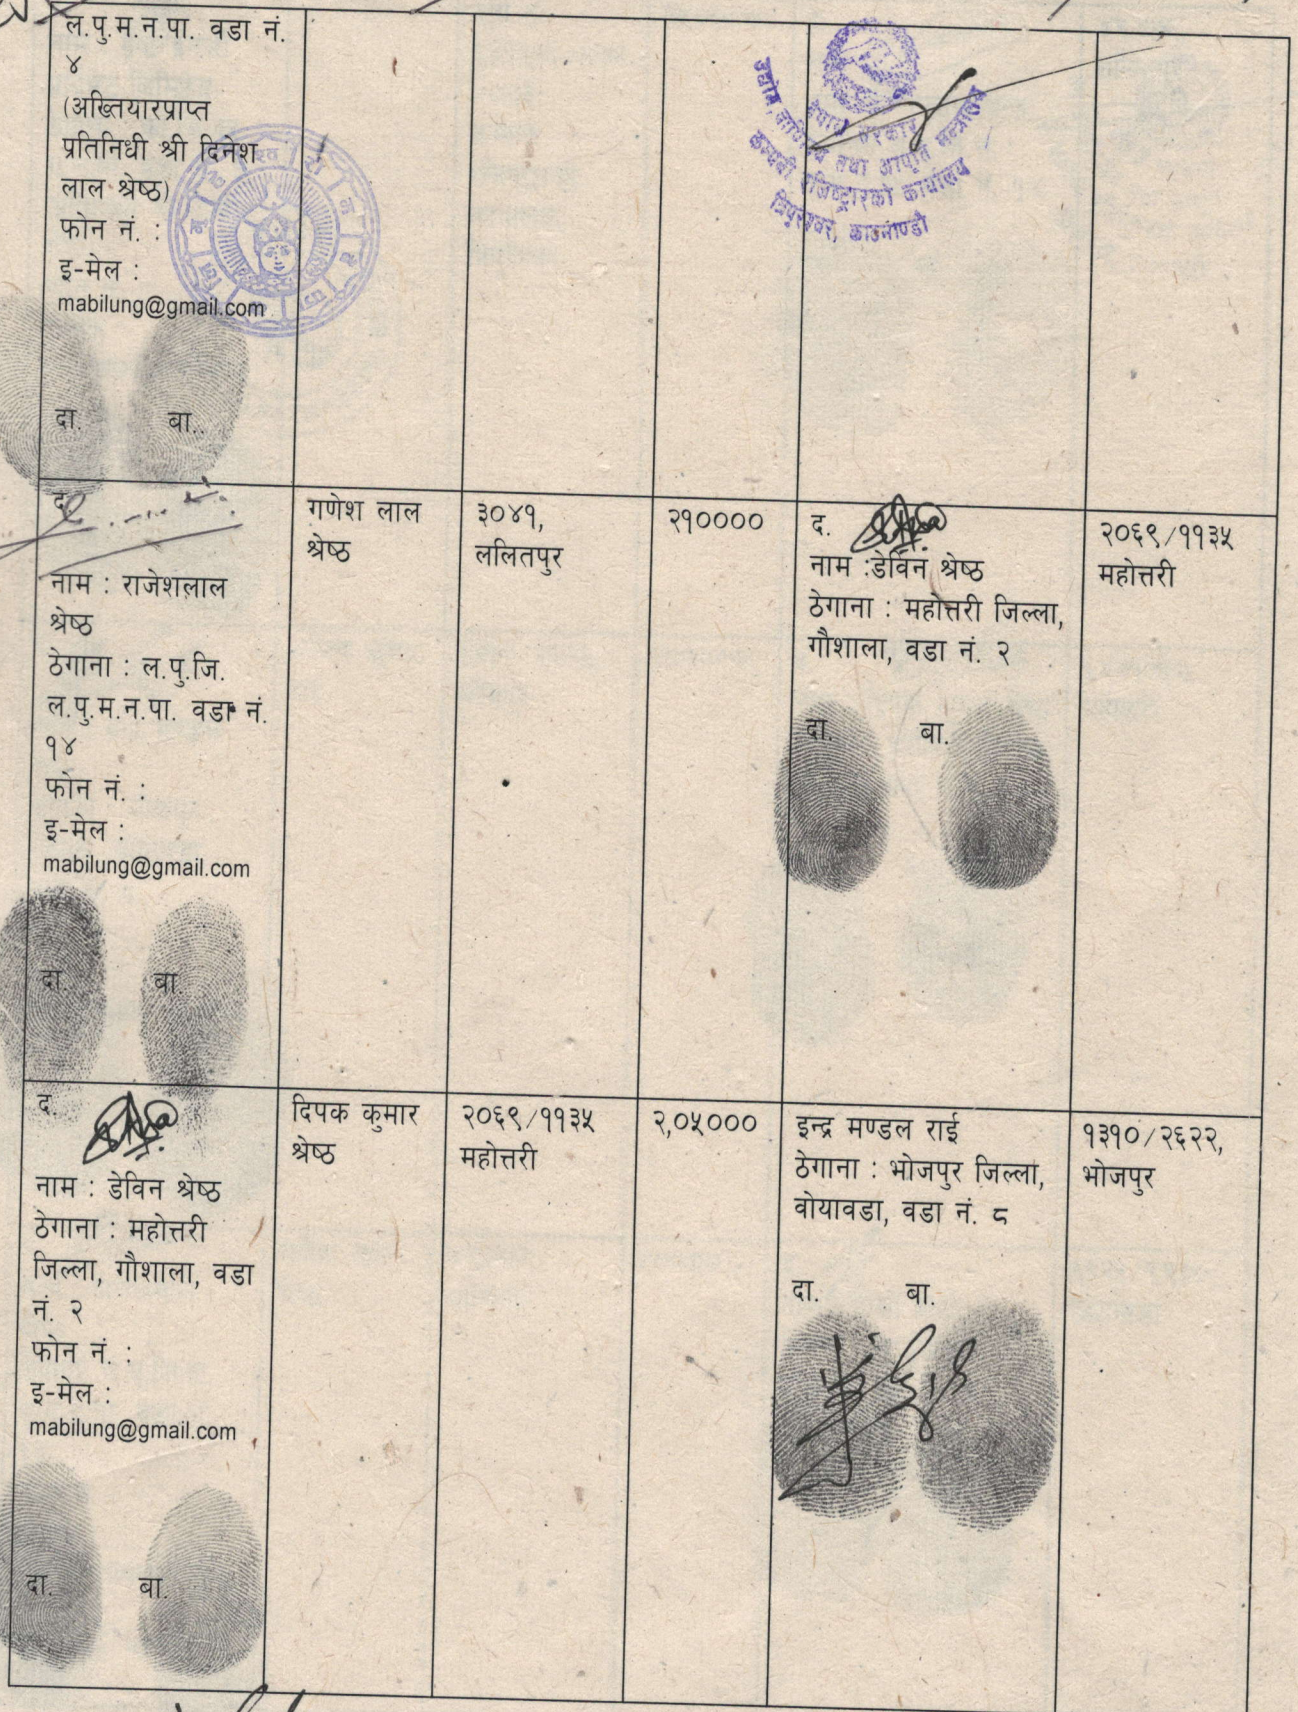 ल.पु.म.न.पा. वडा नं.
४
(अख्तियारप्राप्त
प्रतिनिधी श्री दिनेश
लाल श्रेष्ठ)
फोन नं. :
इ-मेल :
mabilung@gmail.com
दा. बा.
नेपाल सरकार
उद्योग, वाणिज्य तथा आपूर्ति मन्त्रालय
कम्पनी रजिष्ट्रारको कार्यालय
त्रिपुरेश्वर, काठमाण्डौ
द.
नाम : राजेशलाल
श्रेष्ठ
ठेगाना : ल.पु.जि.
ल.पु.म.न.पा. वडा नं.
१४
फोन नं. :
इ-मेल :
mabilung@gmail.com
दा. बा.
गणेश लाल
श्रेष्ठ
३०४१,
ललितपुर
२१००००
द.
नाम :डेविन श्रेष्ठ
ठेगाना : महोत्तरी जिल्ला,
गौशाला, वडा नं. २
दा. बा.
२०६९/११३५
महोत्तरी
द
नाम : डेविन श्रेष्ठ
ठेगाना : महोत्तरी
जिल्ला, गौशाला, वडा
नं. २
फोन नं. :
इ-मेल :
mabilung@gmail.com
दा. बा.
दिपक कुमार
श्रेष्ठ
२०६९/११३५
महोत्तरी
२,०५०००
इन्द्र मण्डल राई
ठेगाना : भोजपुर जिल्ला,
वोयावडा, वडा नं. ८
दा. बा.
१३१०/२६२२,
भोजपुर